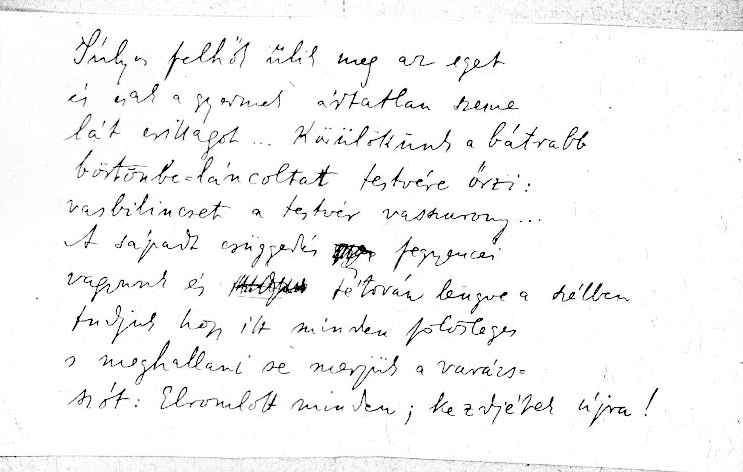 Súlyos felhők ülik meg az eget
és csak a gyermek ártatlan szeme
lát csillagot ... Közülökünk a bátrabb
börtönbe-láncoltatt testvére őrzi:
vasbilincset a testvér vasszurony ...
A sápadt csüggedés fegyencei
vagyunk és tétován lengve a szélben
tudjuk hogy itt minden fölösleges
s meghallani se merjük a varázs-
szót: Elromlott minden; kezdjétek újra!